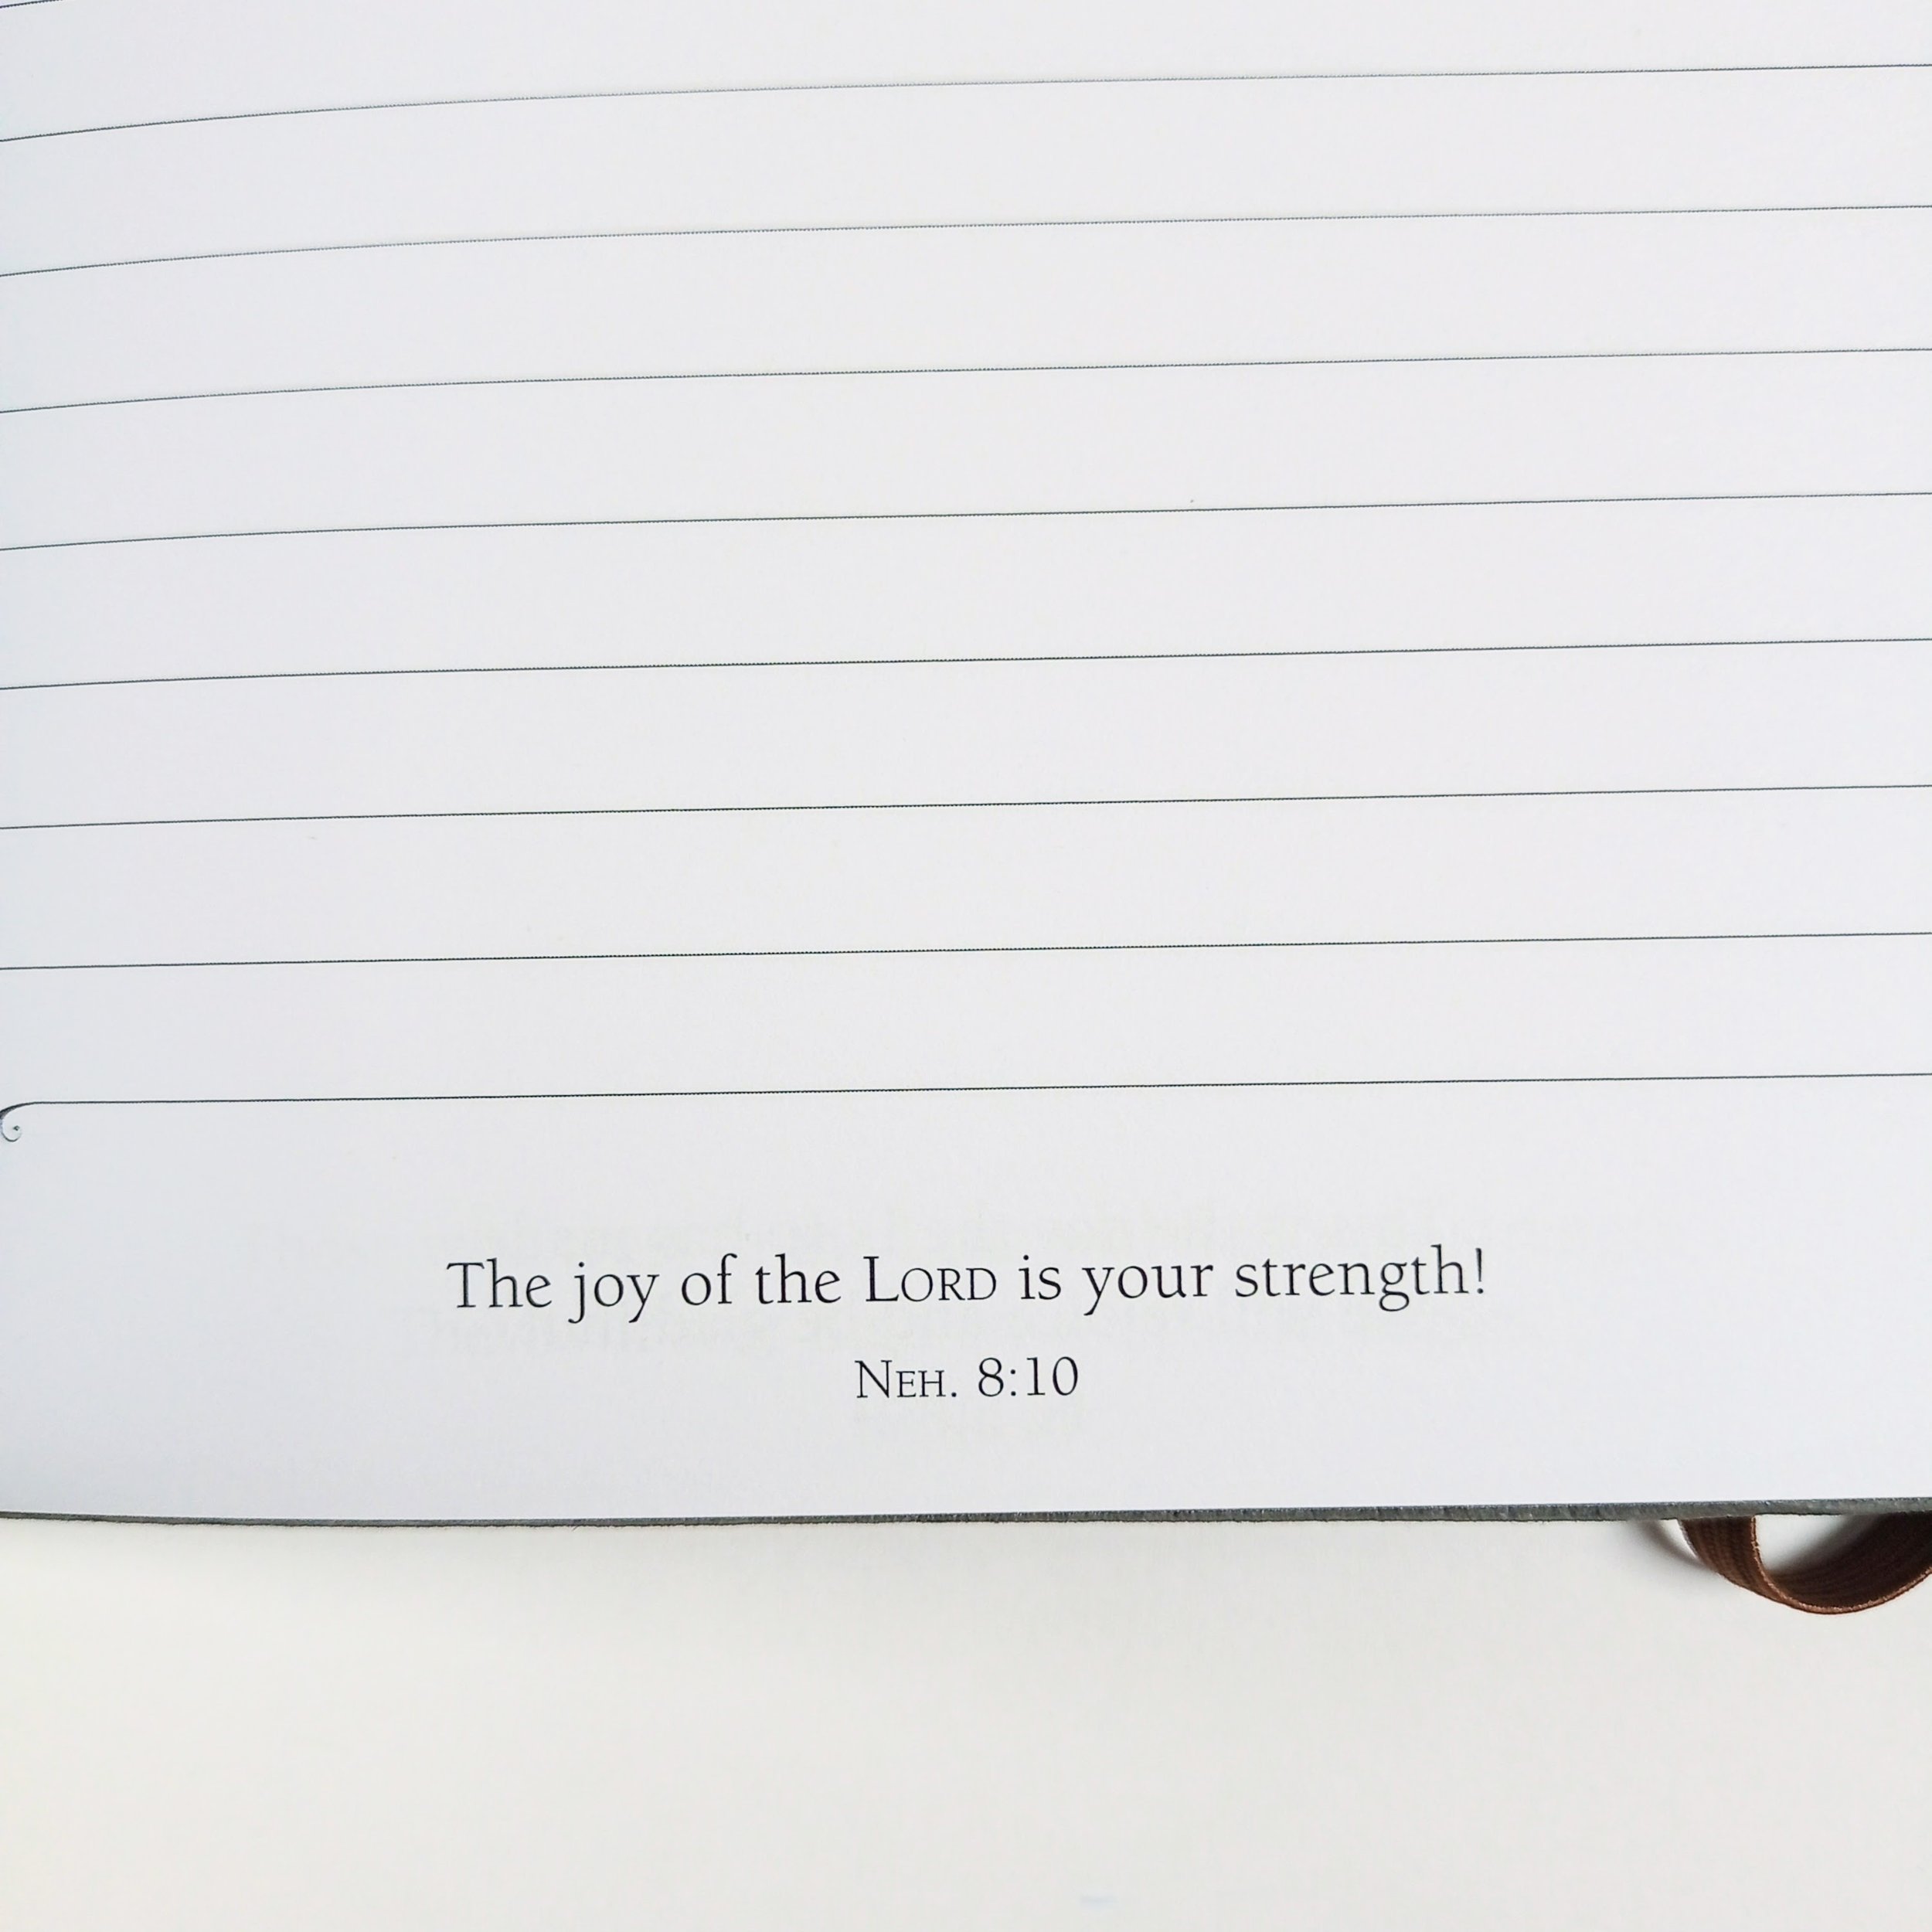 The joy of the LORD is your strength!
NEH. 8:10